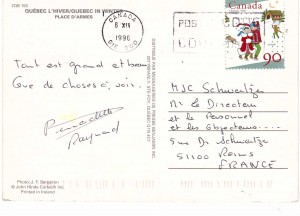 ZOR 192
QUÉBEC L'HIVER/QUEBEC IN WINTER
PLACE D'ARMES
CANADA
8 XII
1996
POS
Canada
90
Tout est grand et beau
Que de choses à voir.
MJC Schwaitzer
Mr le Directeur
et le Personnel
et les Objecteurs....
Rue Dr Schwaitzer
51100 Reims
FRANCE
Photo: J. F. Bergeron
© John Hinde Curteich Inc.
Printed in Ireland